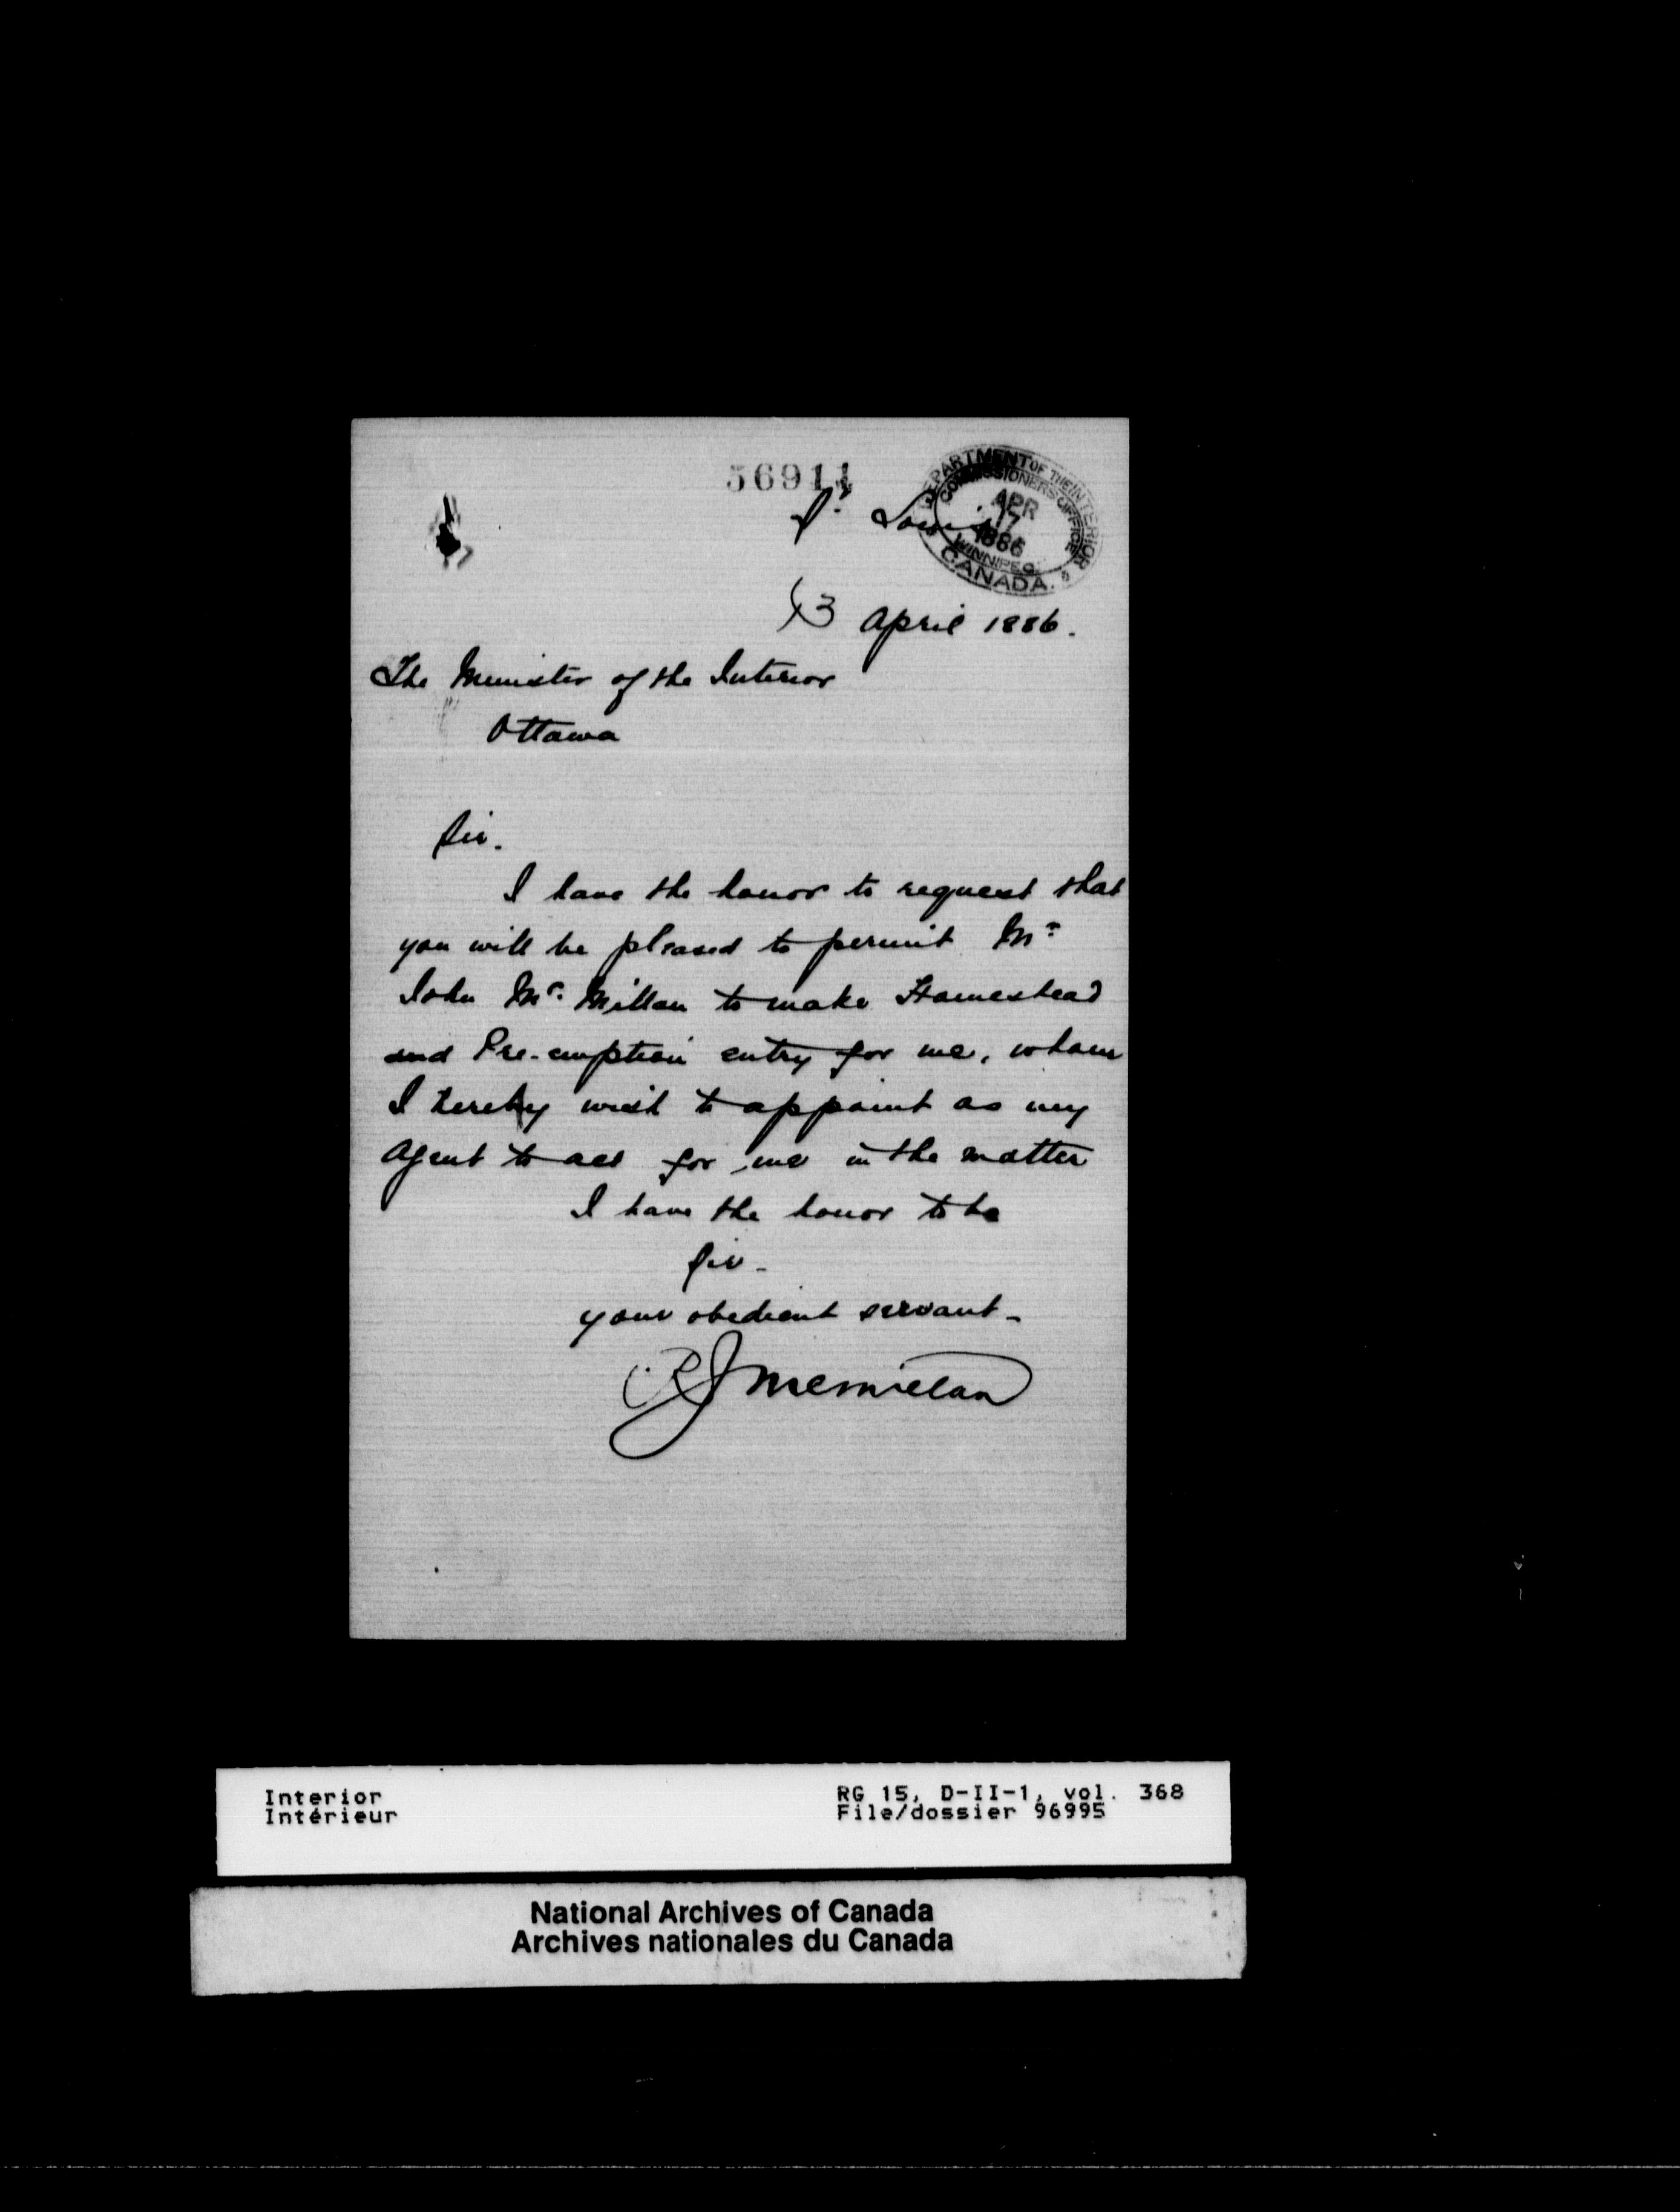 56911
St Louis
DEPARTMENT OF THE INTERIOR
COMMISSIONERS OFFICE
APR
17
1886
WINNIPEG.
CANADA.
13 April 1886.
The Minister of the Interior
Ottawa
Sir.
I have the honor to request that
you will be pleased to permit Mr
John Mc Millan to make Homestead
and Pre-emption entry for me, whom
I hereby wish to appoint as my
Agent to act for me in the matter
I have the honor to be
Sir-
your obedient servant-
RJ McMillan
Interior
Intérieur
RG 15, D-II-1, vol. 368
File/dossier 96995
National Archives of Canada
Archives nationales du Canada